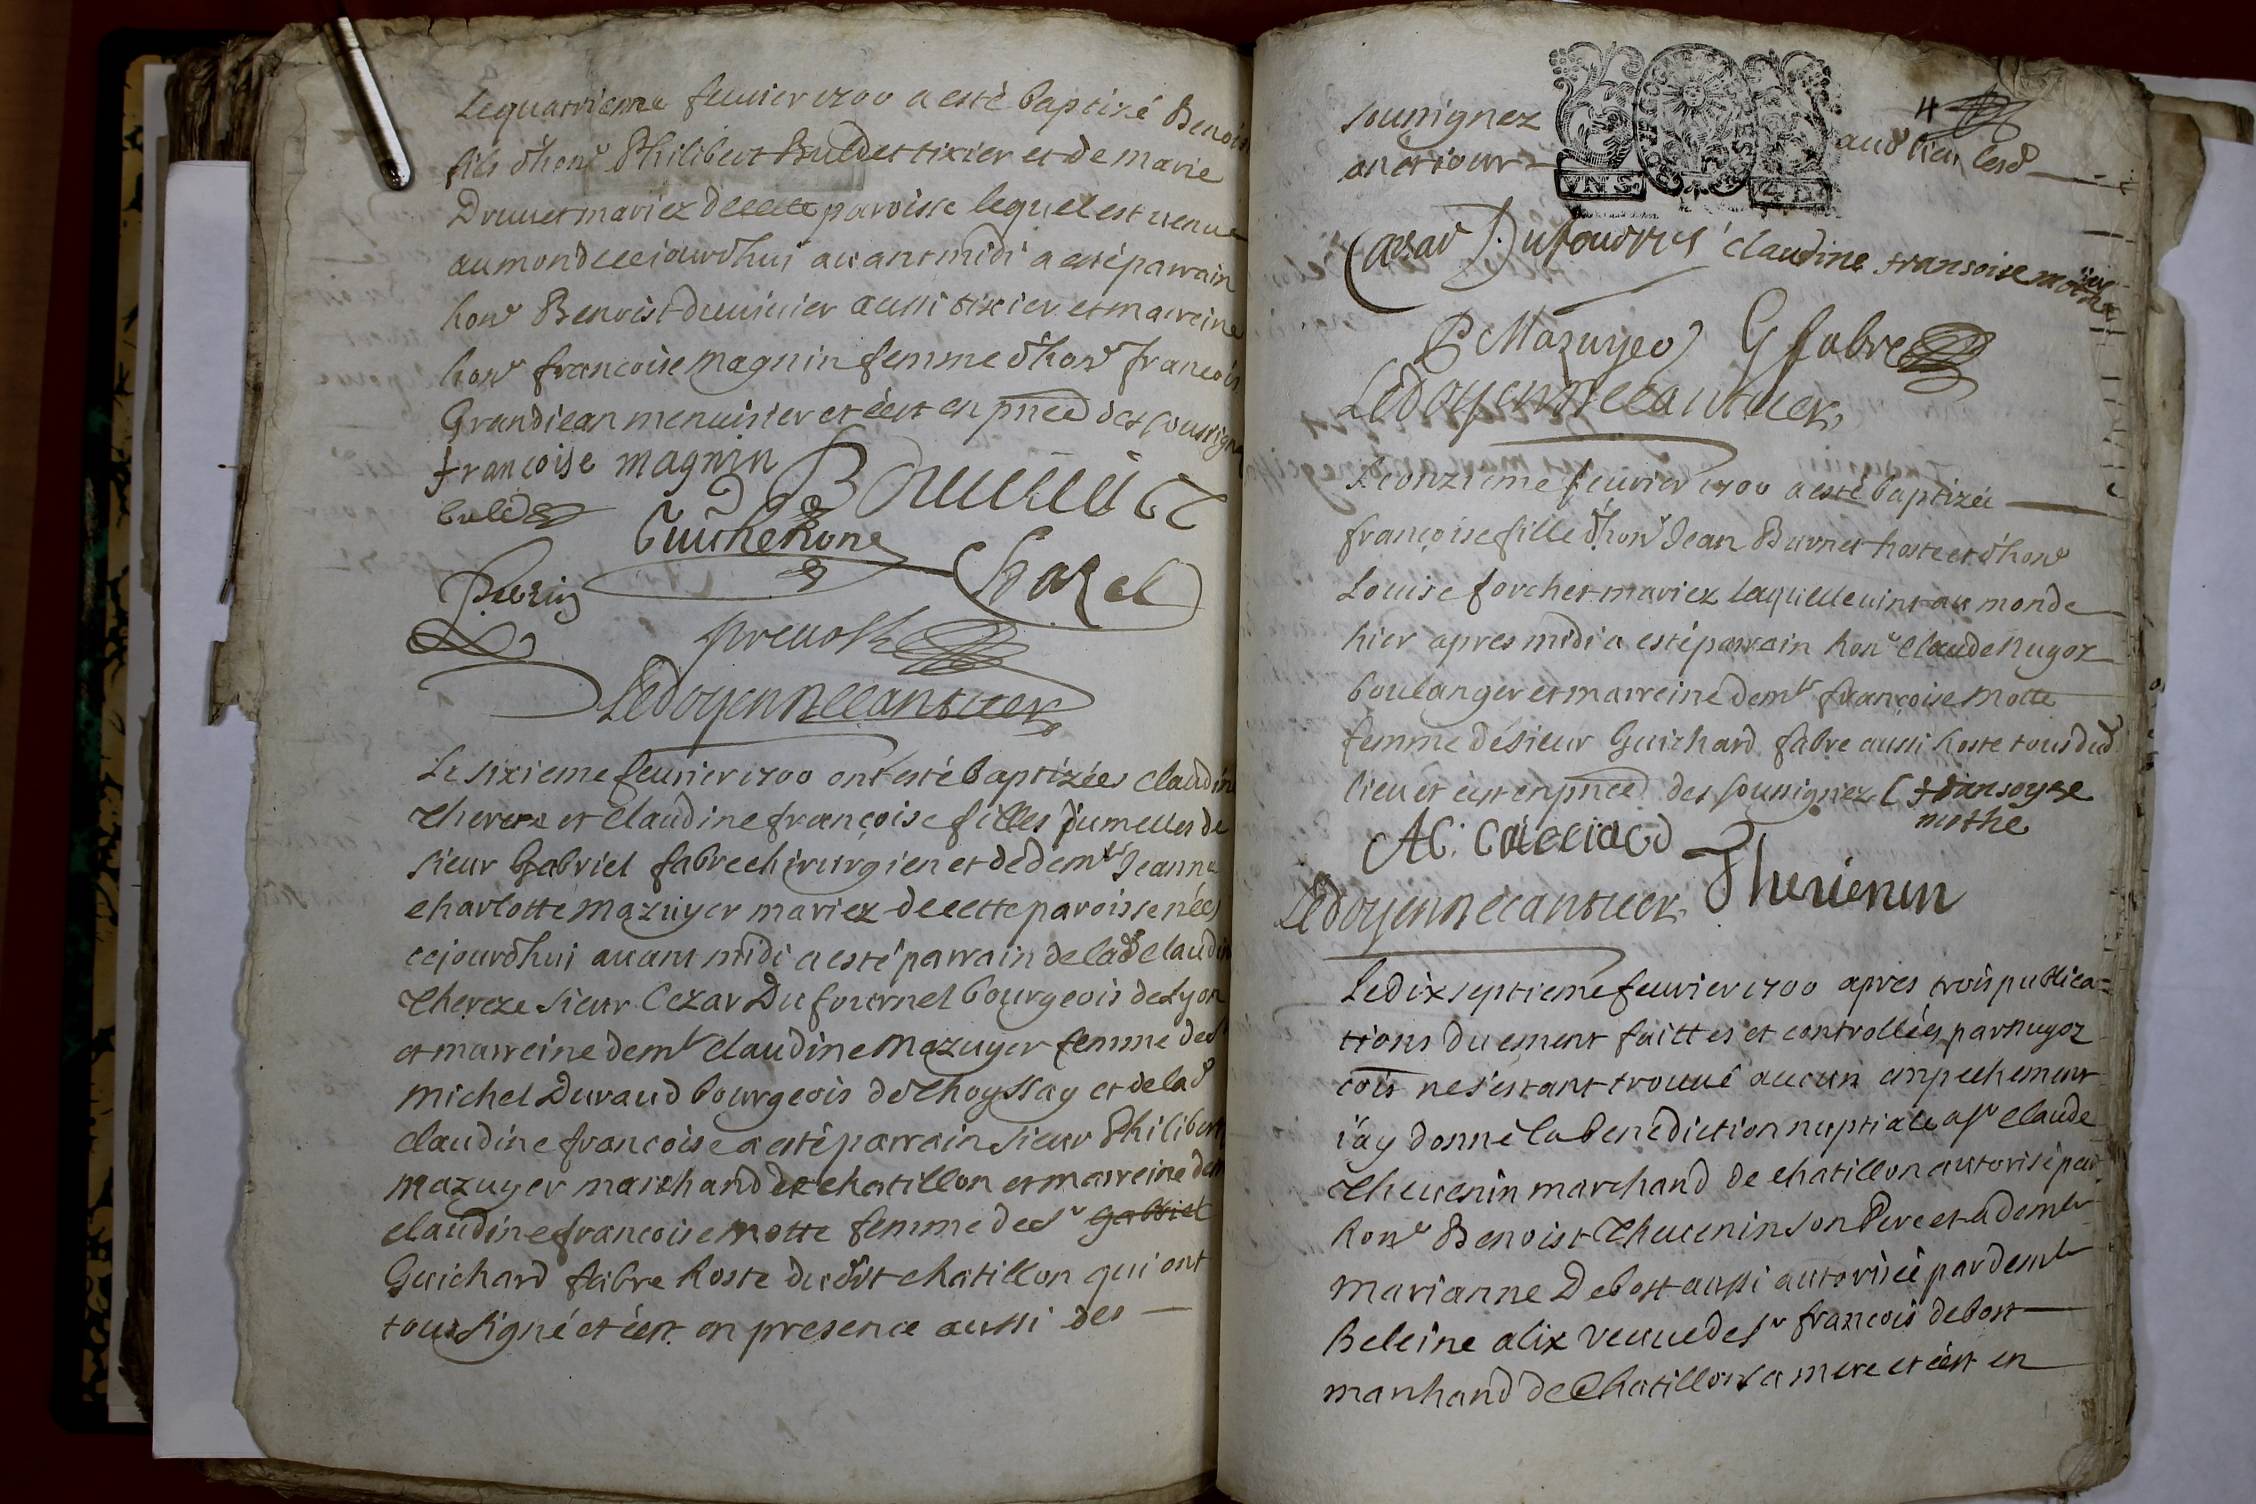 Le quatrieme feuvier 1700 a esté baptizé Benois
fils d'honr Philibert Buldet tixier et de marie
Druuet mariez de cette paroisse lequel est uenu
au monde cejourdhui auant midi a esté parrain
honr Benoist deuuinier aussi tixier et marreine
honr francoise magnin femme d'honr francois
Grandiean menuisier et c'est en pnce des soussigne
francoise magnin
buldet
Guichenon
Chazel
prevost
Ledoyenneecantuer
Le sixieme feuvrier 1700 ont esté baptizées claudine
Thereze et Claudine françoise filles jumelles de
sieur Gabriel fabre chirurgien et de demlle Jeanne
charlotte mazuyer mariez de cette paroisse nées
cejourdhui auant midi a esté parrain de lad Claudin
Thereze sieur Cezar Dufournel bourgeois de Lyon
et marreine demlle Claudine mazuyer femme de sr
michel Duraud bourgeois de Thoyssay et de lad
claudine francoise a esté parrain sieur Philibert
mazuyer marchand de chatillon et marreine dem
claudine francoise motte femme de sr Gabriel
Guichard fabre hoste dudit chatillon qui ont
tous signé et c'est en presence aussi des
soussignez aud lieu lesd
an et jour
VNS 4D
Cæsar Dufournel claudine fransoise mothe
P Mazuyer G fabre
Ledoyenneecantuer
Le onzieme feuvrier 1700 a esté baptizée
françoise fille d'honr Jean Burnet hoste et d'honr
Louise forchet mariez laquelle uint au monde
hier apres midi a esté parrain honr Claude nugoz
boulanger et marreine demlle françoise motte
femme de sieur Guichard fabre aussi hoste tous dud
lieu et c'est en pnce des soussignez fransoyse
mothe
Theuenin
Ledoyenneecantuer
Le dix septieme feuvrier 1700 apres trois publica=
tions duement faittes et controllées par nugoz
cois ne s'estant trouué aucun enpechement
j'ay donné la benediction nuptiale a sr Claude
Theuenin marchand de chatillon autorisé par
honr Benoist Theuenin son Pere et a demlle
marianne Debost aussi autorisée par demlle
heleine alix veuue de sr francois debost
marchand de Chatillon sa mere et c'est en